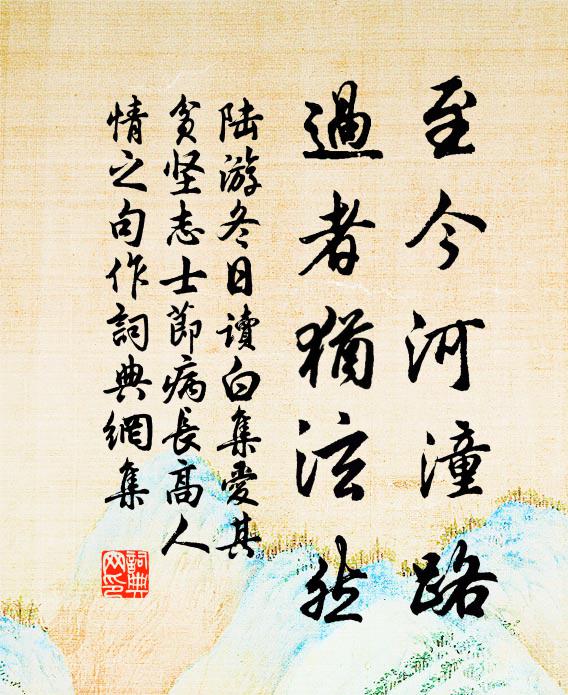 至今河潼路
過者猶泫然
陆游冬日讀白集愛其
貧坚志士節病長高人
情之句作詞典網集
詞典
网印